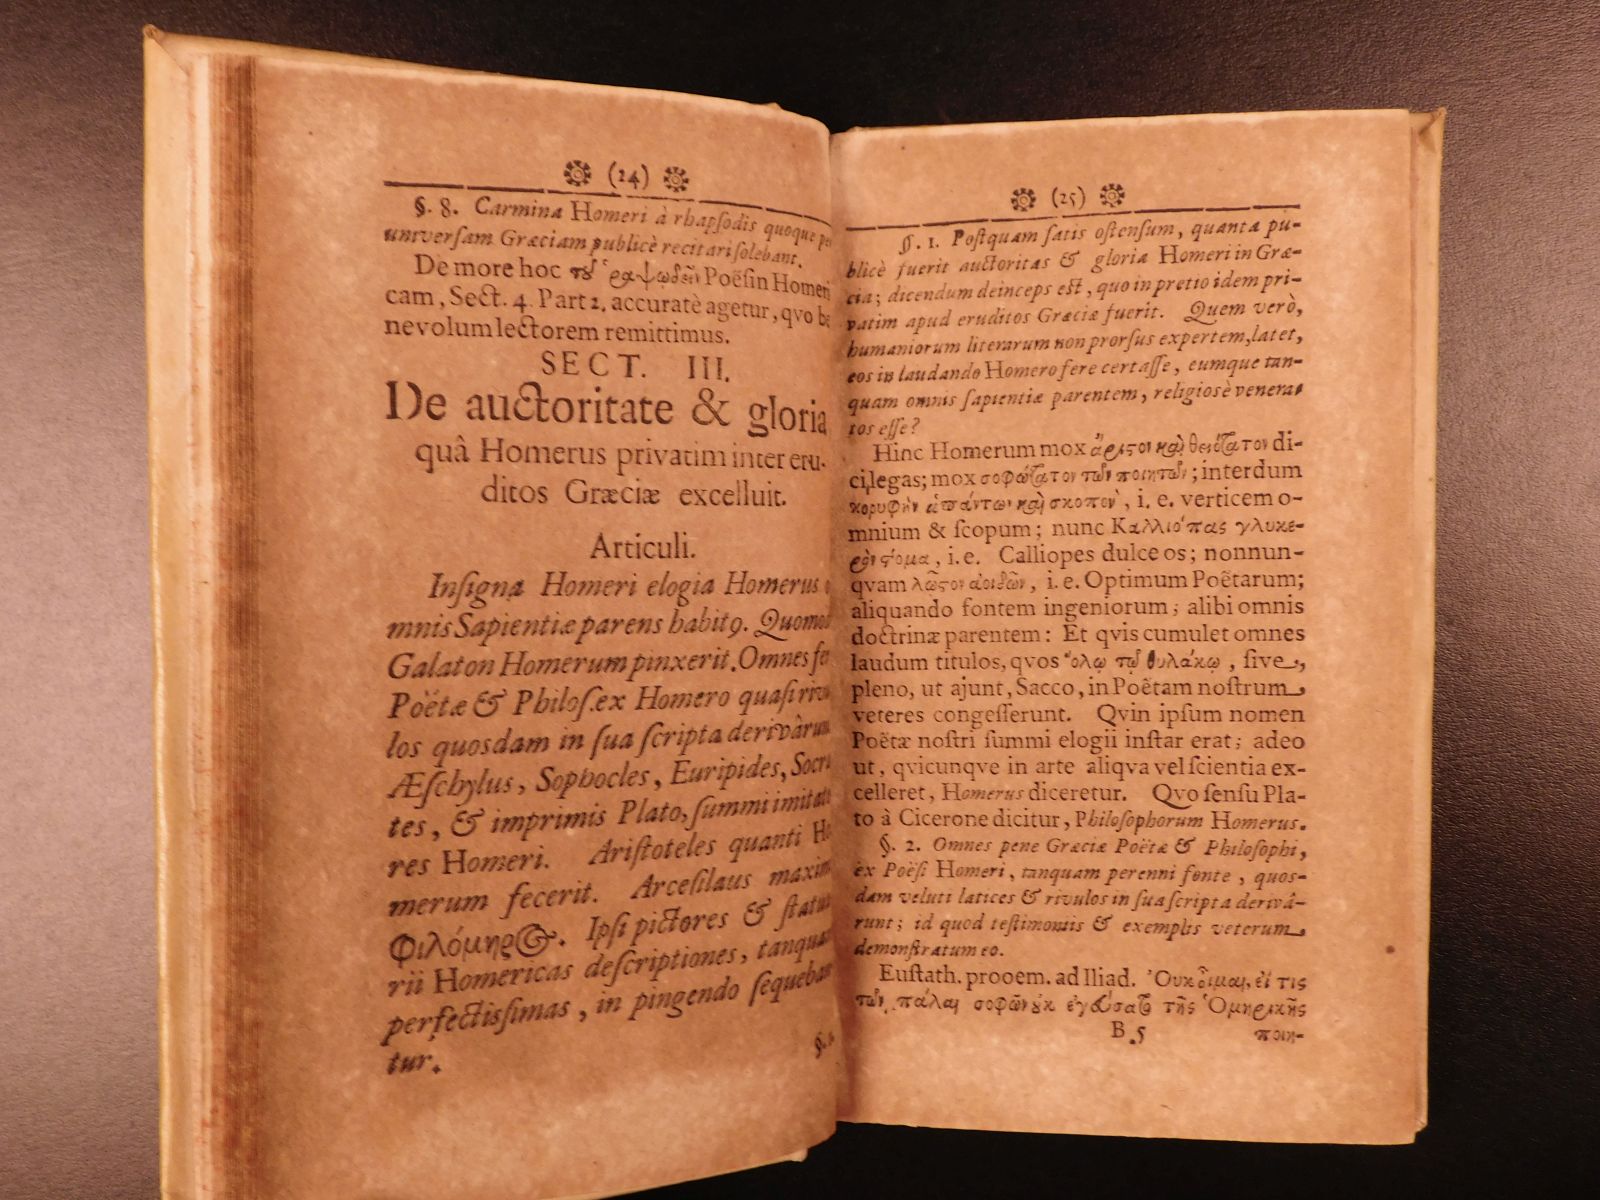 (24)
§. 8. Carmina Homeri à rhapſodis quoque per
univerſam Græciam publicè recitari ſolebant.
De more hoc τȣ͂ ῥαψῳδεῖν Poëſin Homeri
cam, Sect. 4. Part 2. accuratè agetur, qvo be
nevolum lectorem remittimus.
SECT. III.
De auctoritate & gloria
quâ Homerus privatim inter eru-
ditos Græciæ excelluit.
Articuli.
Inſigna Homeri elogia Homerus o
mnis Sapientiæ parens habitꝰ. Quomodo
Galaton Homerum pinxerit. Omnes fe
Poëtæ & Philoſ. ex Homero quaſi rivu
los quosdam in ſua ſcripta derivârunt
Æſchylus, Sophocles, Euripides, Socra
tes, & imprimis Plato, ſummi imitato
res Homeri. Ariſtoteles quanti Ho
merum fecerit. Arceſilaus maxim
Φιλόμηρος. Ipſi pictores & ſtatua
rii Homericas deſcriptiones, tanquam
perfectiſſimas, in pingendo ſequeban
tur.
§. 1.
(25)
§. 1. Poſtquam ſatis oſtenſum, quanta pu-
blicè fuerit auctoritas & gloria Homeri in Græ-
cia; dicendum deinceps eſt, quo in pretio idem pri-
vatim apud eruditos Græciæ fuerit. Quem verò,
humaniorum literarum non prorſus expertem, latet,
eos in laudando Homero fere certaſſe, eumque tan-
quam omnis ſapientiæ parentem, religiosè venera-
tos eſſe?
Hinc Homerum mox ἄριστον καὶ θειότατον di-
ci, legas; mox σοφώτατον τῶν ποιητῶν; interdum
κορυφὴν ἁπάντων καὶ σκοπὸν, i. e. verticem o-
mnium & ſcopum; nunc Καλλιόπας γλυκε-
ρὸν στόμα, i. e. Calliopes dulce os; nonnun-
qvam λῶστον ἀοιδῶν, i. e. Optimum Poëtarum;
aliquando fontem ingeniorum; alibi omnis
doctrinæ parentem: Et qvis cumulet omnes
laudum titulos, qvos ὅλῳ τῷ θυλάκῳ, ſive,
pleno, ut ajunt, Sacco, in Poëtam noſtrum
veteres congeſſerunt. Qvin ipſum nomen
Poëtæ noſtri ſummi elogii inſtar erat; adeo
ut, qvicunqve in arte aliqva vel ſcientia ex-
celleret, Homerus diceretur. Qvo ſenſu Pla-
to â Cicerone dicitur, Philoſophorum Homerus.
§. 2. Omnes pene Græciæ Poëtæ & Philoſophi,
ex Poëſi Homeri, tanquam perenni fonte, quos-
dam veluti latices & rivulos in ſua ſcripta derivâ-
runt; id quod teſtimoniis & exemplis veterum
demonſtratum eo.
Euſtath. prooem. ad Iliad. Ὀυκ οἶμαι, εἴ τις
τῶν πάλαι σοφῶν ȣ̓κ ἐγεύσατο τῆς Ὁμηρικῆς
B 5
ποιη-